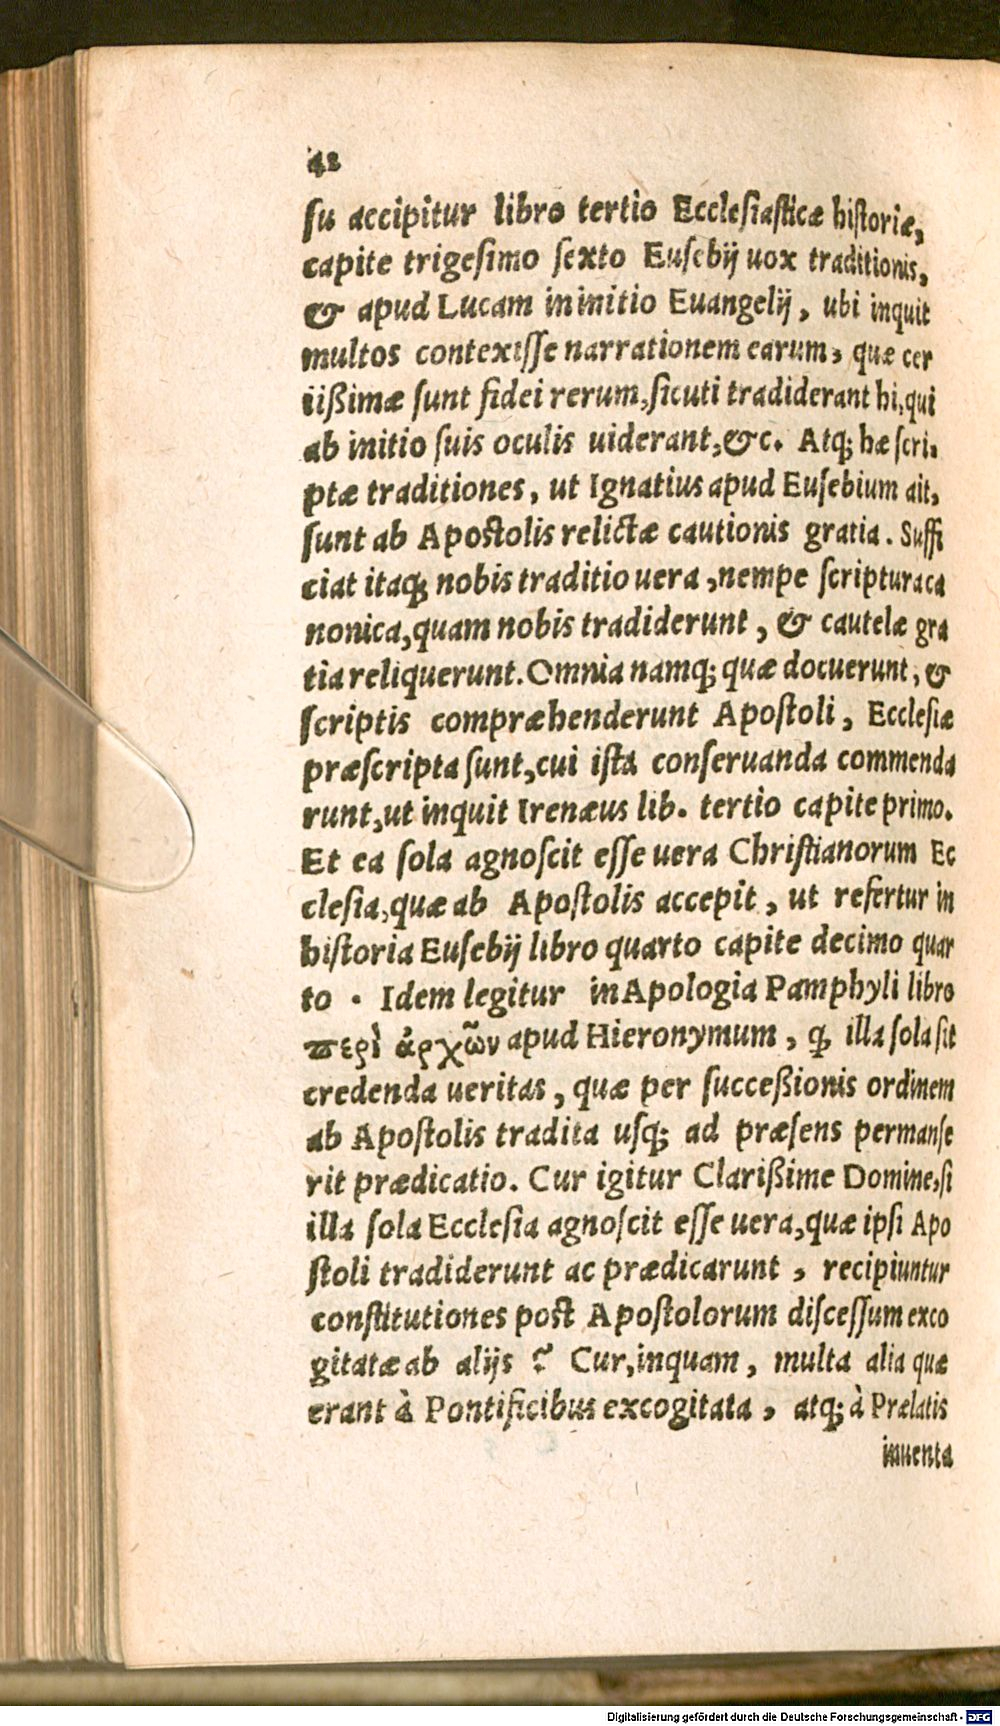 42
su accipitur libro tertio Ecclesiasticæ historiæ,
capite trigesimo sexto Eusebij uox traditionis,
& apud Lucam in initio Euangelij, ubi inquit
multos contexisse narrationem earum, quæ cer
tißimæ sunt fidei rerum, sicuti tradiderant hi, qui
ab initio suis oculis uiderant, &c. Atq; hæ scri-
ptæ traditiones, ut Ignatius apud Eusebium ait,
sunt ab Apostolis relictæ cautionis gratia. Suffi
ciat itaq; nobis traditio uera, nempe scriptura ca
nonica, quam nobis tradiderunt, & cautelæ gra
tia reliquerunt. Omnia namq; quæ docuerunt, &
scriptis compræhenderunt Apostoli, Ecclesiæ
præscripta sunt, cui ista conseruanda commenda
runt, ut inquit Irenæus lib. tertio capite primo.
Et ea sola agnoscit esse uera Christianorum Ec
clesia, quæ ab Apostolis accepit, ut refertur in
historia Eusebij libro quarto capite decimo quar
to. Idem legitur in Apologia Pamphyli libro
περὶ ἀρχῶν apud Hieronymum, ꝙ illa sola sit
credenda ueritas, quæ per succeßionis ordinem
ab Apostolis tradita usq; ad præsens permanse
rit prædicatio. Cur igitur Clarißime Domine, si
illa sola Ecclesia agnoscit esse uera, quæ ipsi Apo
stoli tradiderunt ac prædicarunt, recipiuntur
constitutiones post Apostolorum discessum exco
gitatæ ab alijs? Cur, inquam, multa alia quæ
erant à Pontificibus excogitata, atq; à Prælatis
inuenta
Digitalisierung gefördert durch die Deutsche Forschungsgemeinschaft - DFG